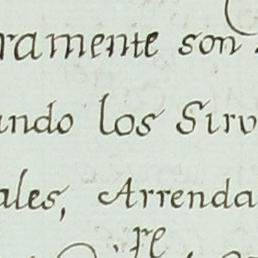 ramente son
ando los Sirv
ales, Arrenda
re